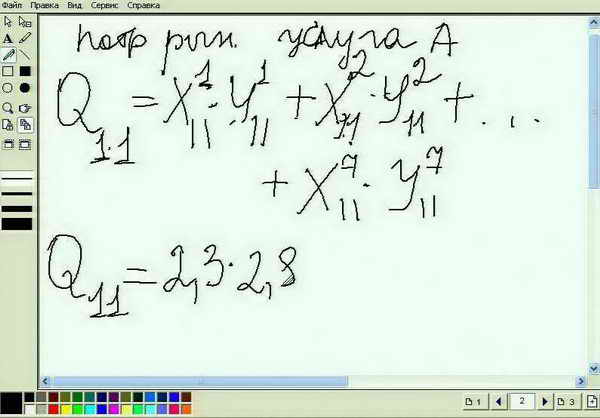 Файл Правка Вид Сервис Справка
потр рын. услуга А
Q₁.₁ = X¹₁₁ · Y¹₁₁ + X²₁₁ · Y²₁₁ + . . .
+ X⁷₁₁ · Y⁷₁₁
Q₁₁ = 2,3 · 2,8
1 2 3